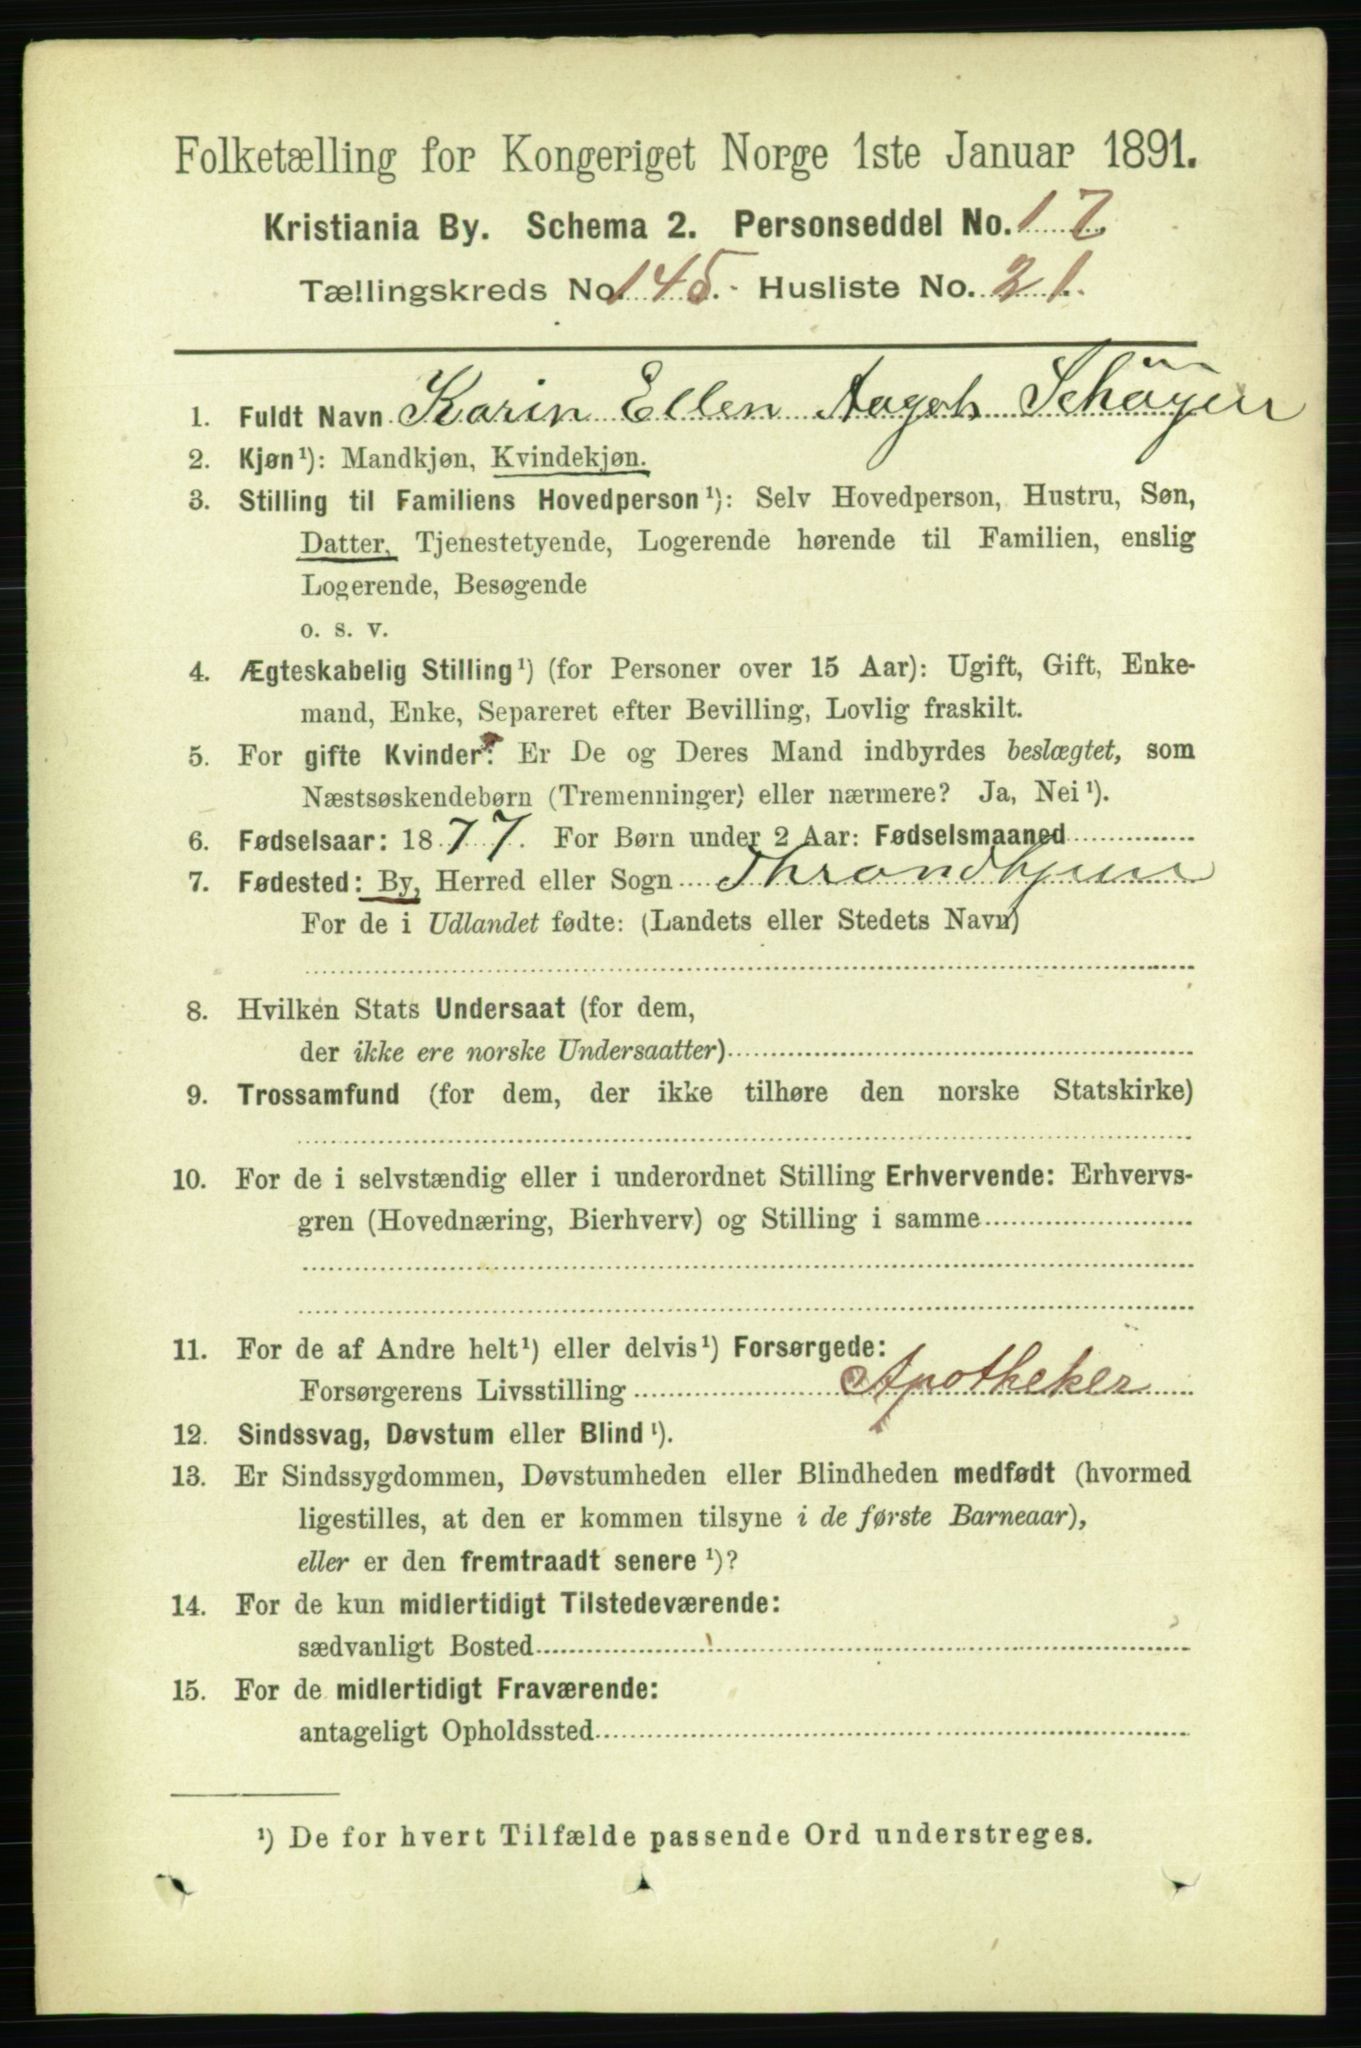 Folketælling for Kongeriget Norge 1ste Januar 1891.
Kristiania By. Schema 2. Personseddel No. 17
Tællingskreds No. 145. Husliste No. 21.
1. Fuldt Navn Karin Ellen Schøyen
2. Kjøn¹): Mandkjøn, Kvindekjøn.
3. Stilling til Familiens Hovedperson¹): Selv Hovedperson, Hustru, Søn,
Datter, Tjenestetyende, Logerende hørende til Familien, enslig
Logerende, Besøgende
o. s. v.
4. Ægteskabelig Stilling¹) (for Personer over 15 Aar): Ugift, Gift, Enke-
mand, Enke, Separeret efter Bevilling, Lovlig fraskilt.
5. For gifte Kvinder: Er De og Deres Mand indbyrdes beslægtet, som
Næstsøskendebørn (Tremenninger) eller nærmere? Ja, Nei¹).
6. Fødselsaar: 1877. For Børn under 2 Aar: Fødselsmaaned
7. Fødested: By, Herred eller Sogn Throndhjem
For de i Udlandet fødte: (Landets eller Stedets Navn)
8. Hvilken Stats Undersaat (for dem,
der ikke ere norske Undersaatter)
9. Trossamfund (for dem, der ikke tilhøre den norske Statskirke)
10. For de i selvstændig eller i underordnet Stilling Erhvervende: Erhvervs-
gren (Hovednæring, Bierhverv) og Stilling i samme
11. For de af Andre helt¹) eller delvis¹) Forsørgede:
Forsørgerens Livsstilling Apotheker
12. Sindssvag, Døvstum eller Blind¹).
13. Er Sindssygdommen, Døvstumheden eller Blindheden medfødt (hvormed
ligestilles, at den er kommen tilsyne i de første Barneaar),
eller er den fremtraadt senere¹)?
14. For de kun midlertidigt Tilstedeværende:
sædvanligt Bosted
15. For de midlertidigt Fraværende:
antageligt Opholdssted
¹) De for hvert Tilfælde passende Ord understreges.